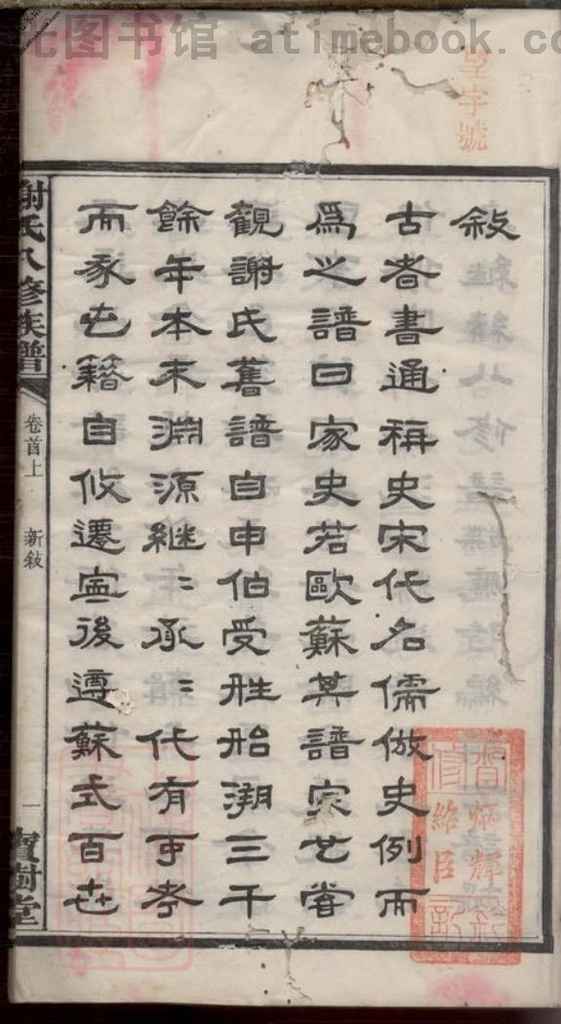 图书馆 atimebook.co
字號
敍
古者書通稱史宋代名儒倣史例而
爲之譜曰家史若歐蘇其譜宗也嘗
觀謝氏舊譜自申伯受姓始溯三千
餘年本末淵源継〻承〻代有可考
而承世籍自攸遷寍後遵蘇式百世
謝氏八修族譜
卷首上
新敍
一
寶樹堂